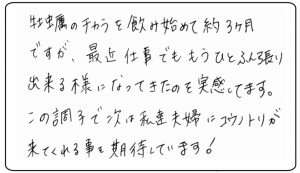 牡蠣のチカラを飲み始めて約3ヶ月
ですが、最近仕事でももうひとふん張り
出来る様になってきたのを実感してます。
この調子で次は私達夫婦にコウノトリが
来てくれる事を期待しています!